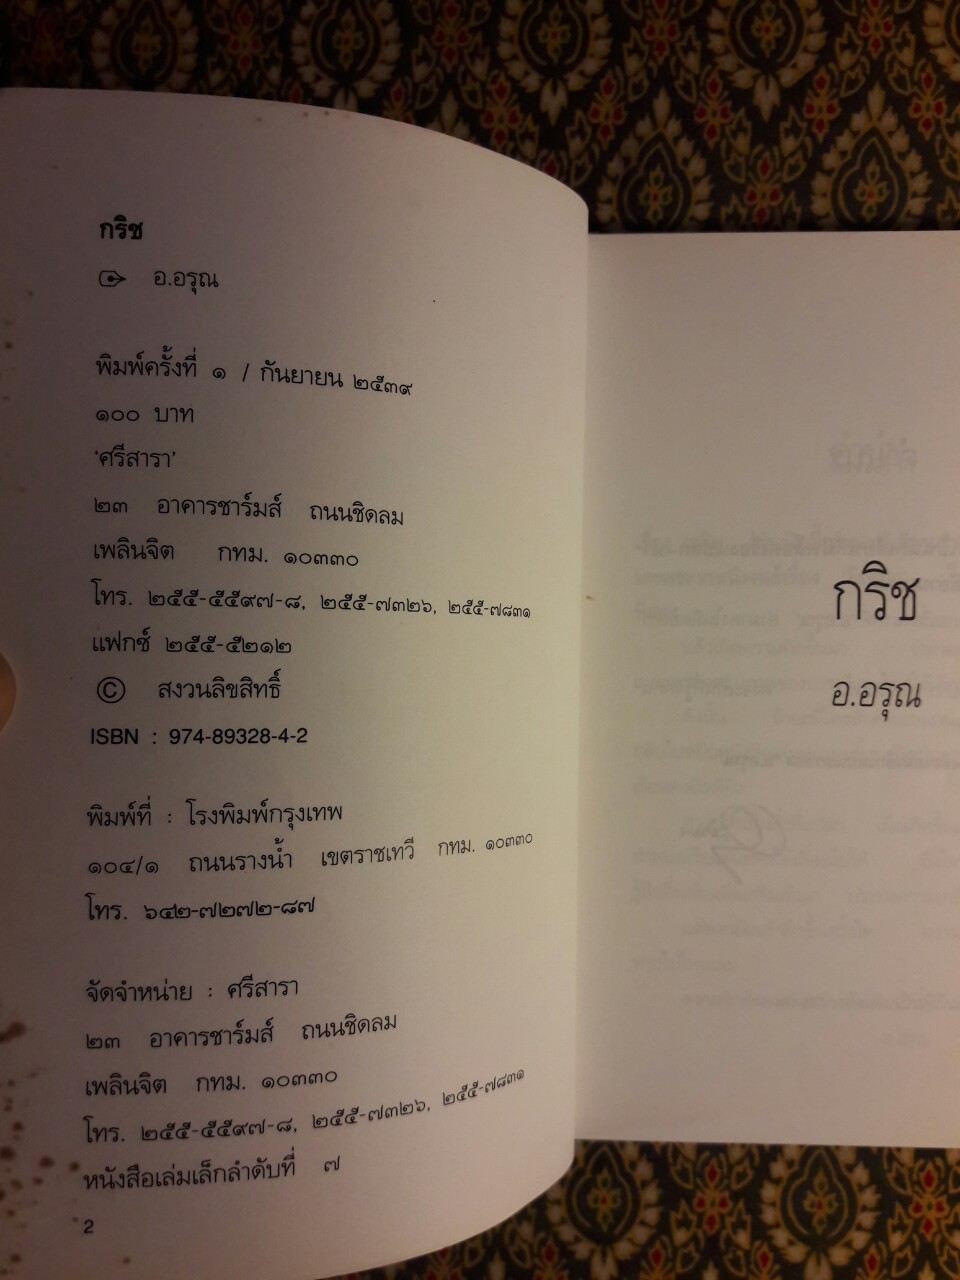 กริช
อ.อรุณ
พิมพ์ครั้งที่ ๑ / กันยายน ๒๕๓๙
๑๐๐ บาท
'ศรีสารา'
๒๓ อาคารชาร์มส์ ถนนชิดลม
เพลินจิต กทม. ๑๐๓๓๐
โทร. ๒๕๕-๕๕๙๗-๘, ๒๕๕-๗๓๒๖, ๒๕๕-๗๘๓๑
แฟกซ์ ๒๕๕-๕๒๑๒
© สงวนลิขสิทธิ์
ISBN : 974-89328-4-2
พิมพ์ที่ : โรงพิมพ์กรุงเทพ
๑๐๔/๑ ถนนรางน้ำ เขตราชเทวี กทม. ๑๐๓๓๐
โทร. ๖๔๒-๗๒๗๒-๘๗
จัดจำหน่าย : ศรีสารา
๒๓ อาคารชาร์มส์ ถนนชิดลม
เพลินจิต กทม. ๑๐๓๓๐
โทร. ๒๕๕-๕๕๙๗-๘, ๒๕๕-๗๓๒๖, ๒๕๕-๗๘๓๑
หนังสือเล่มเล็กลำดับที่ ๗
2
กริช
อ.อรุณ